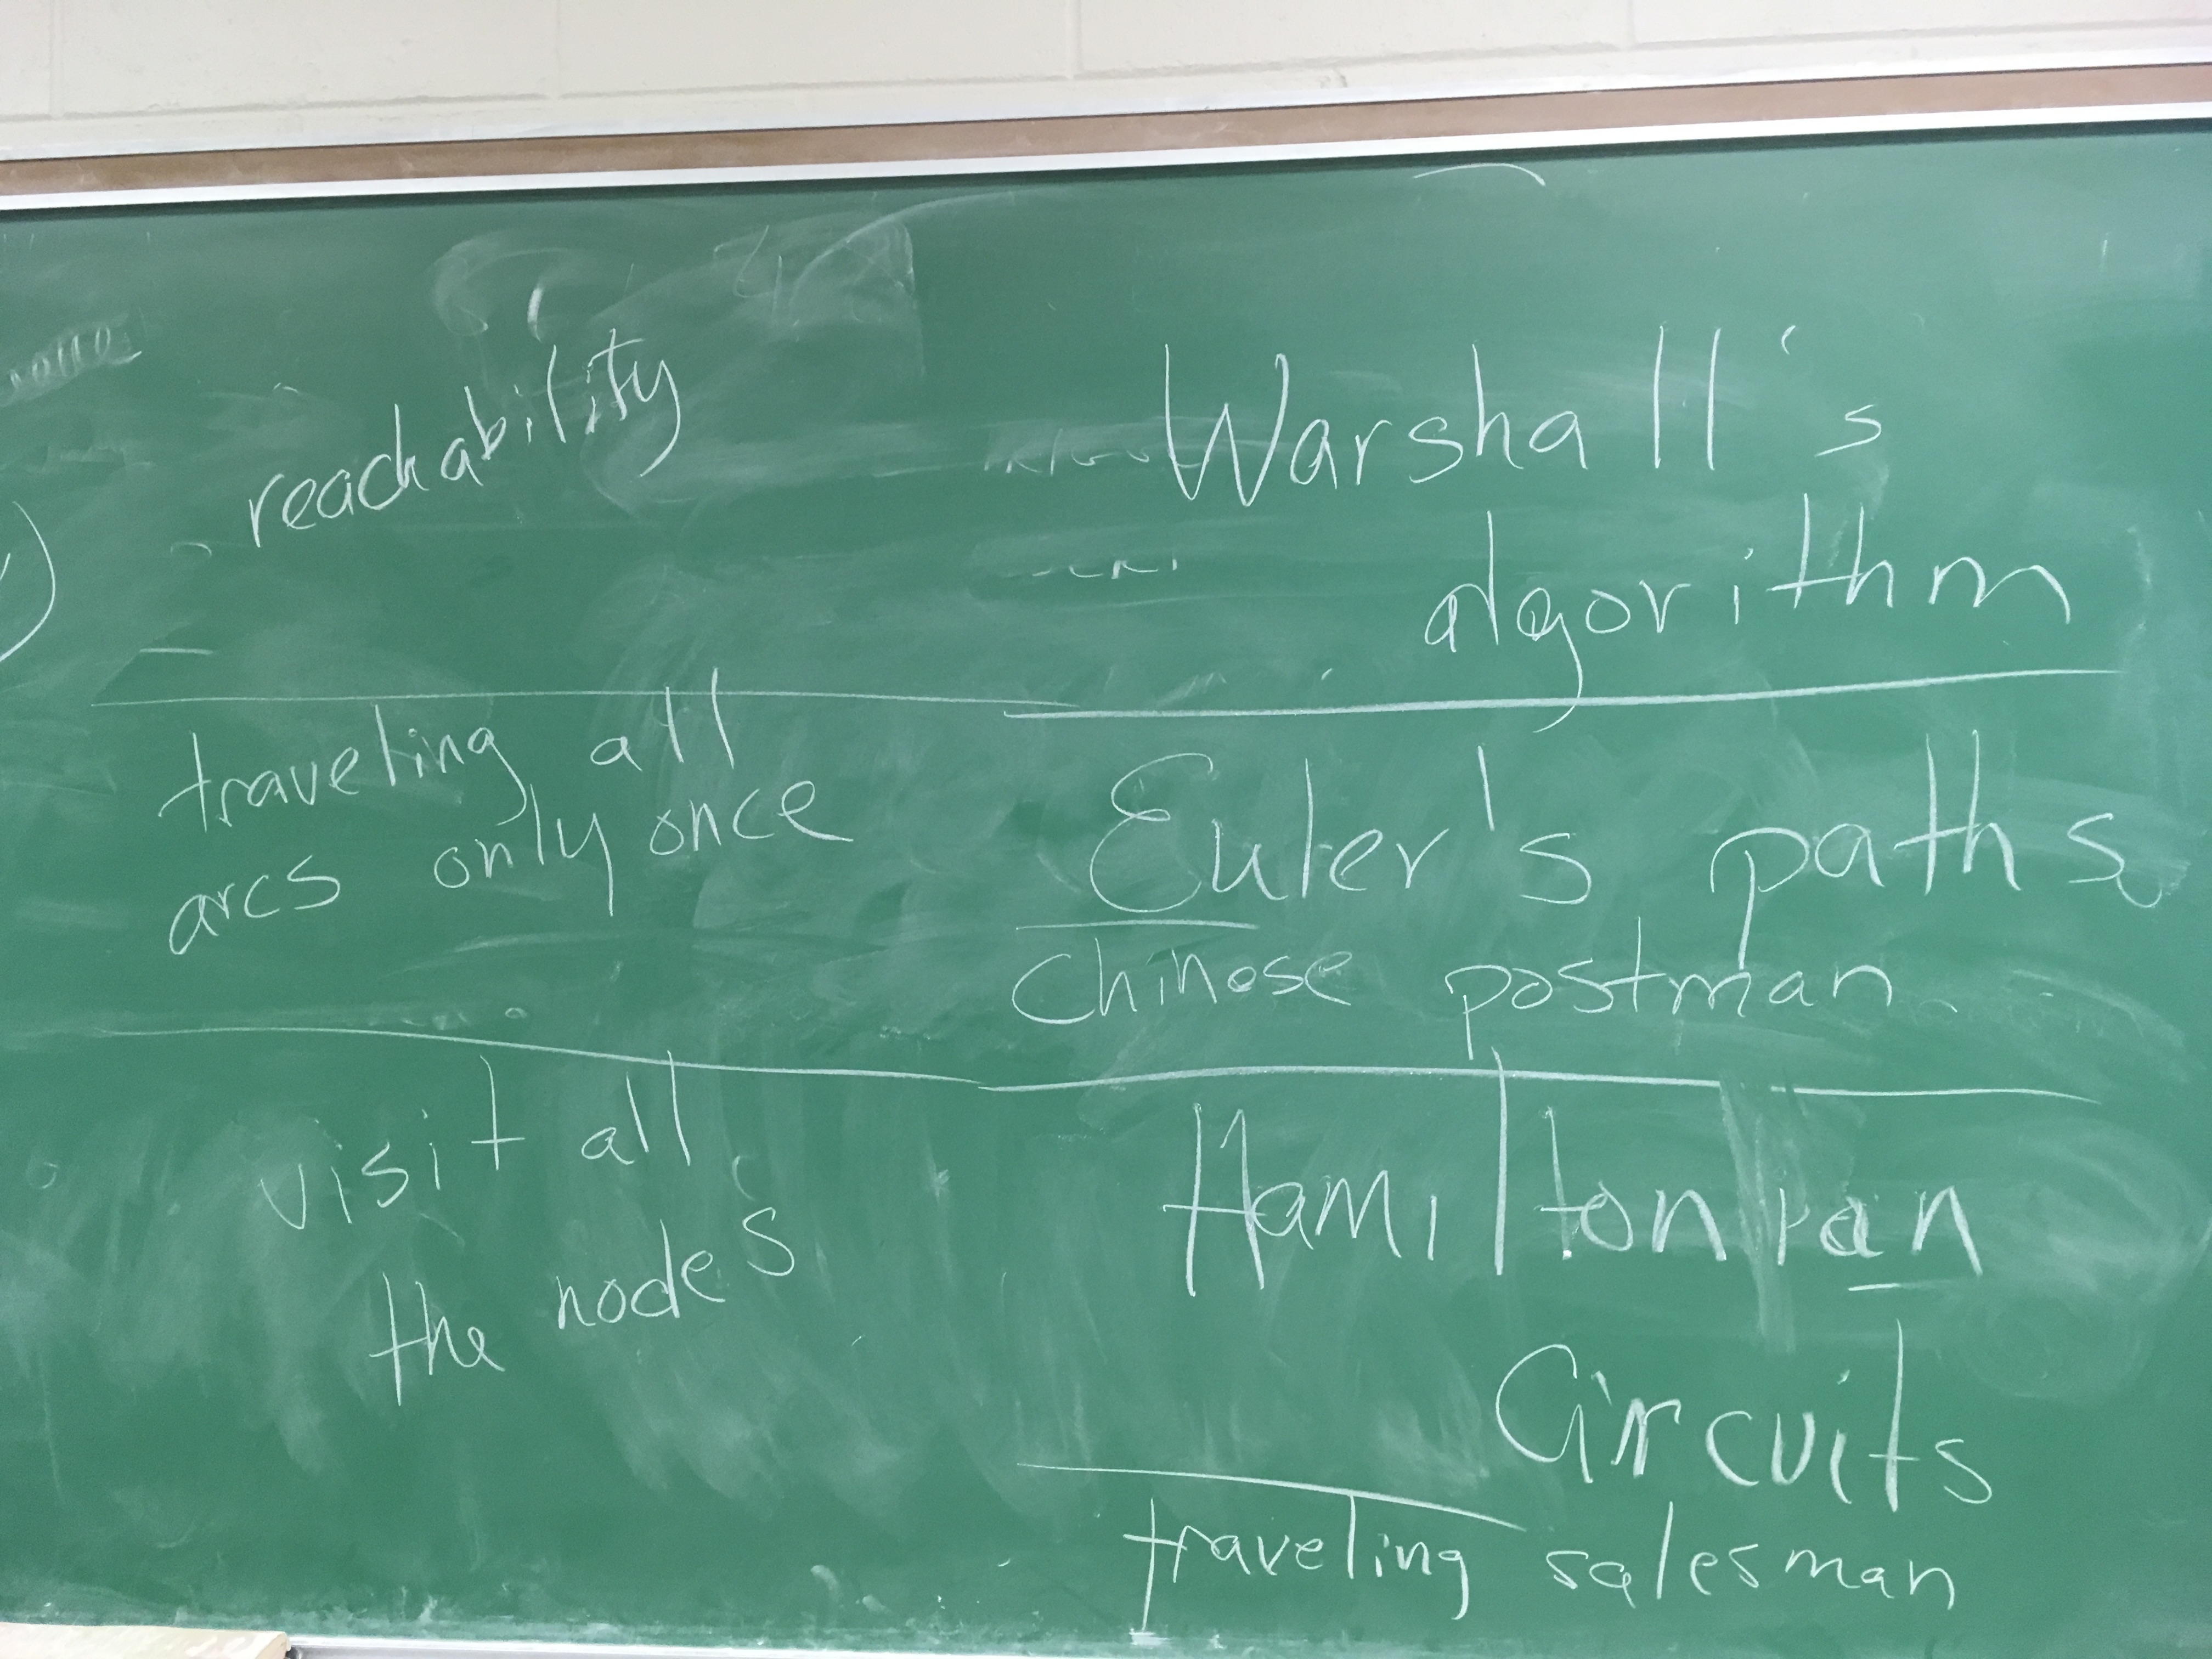 reachability
Warshall's
algorithm
traveling all
arcs only once
Euler's paths
Chinese postman
visit all
the nodes
Hamiltonian
Circuits
traveling salesman